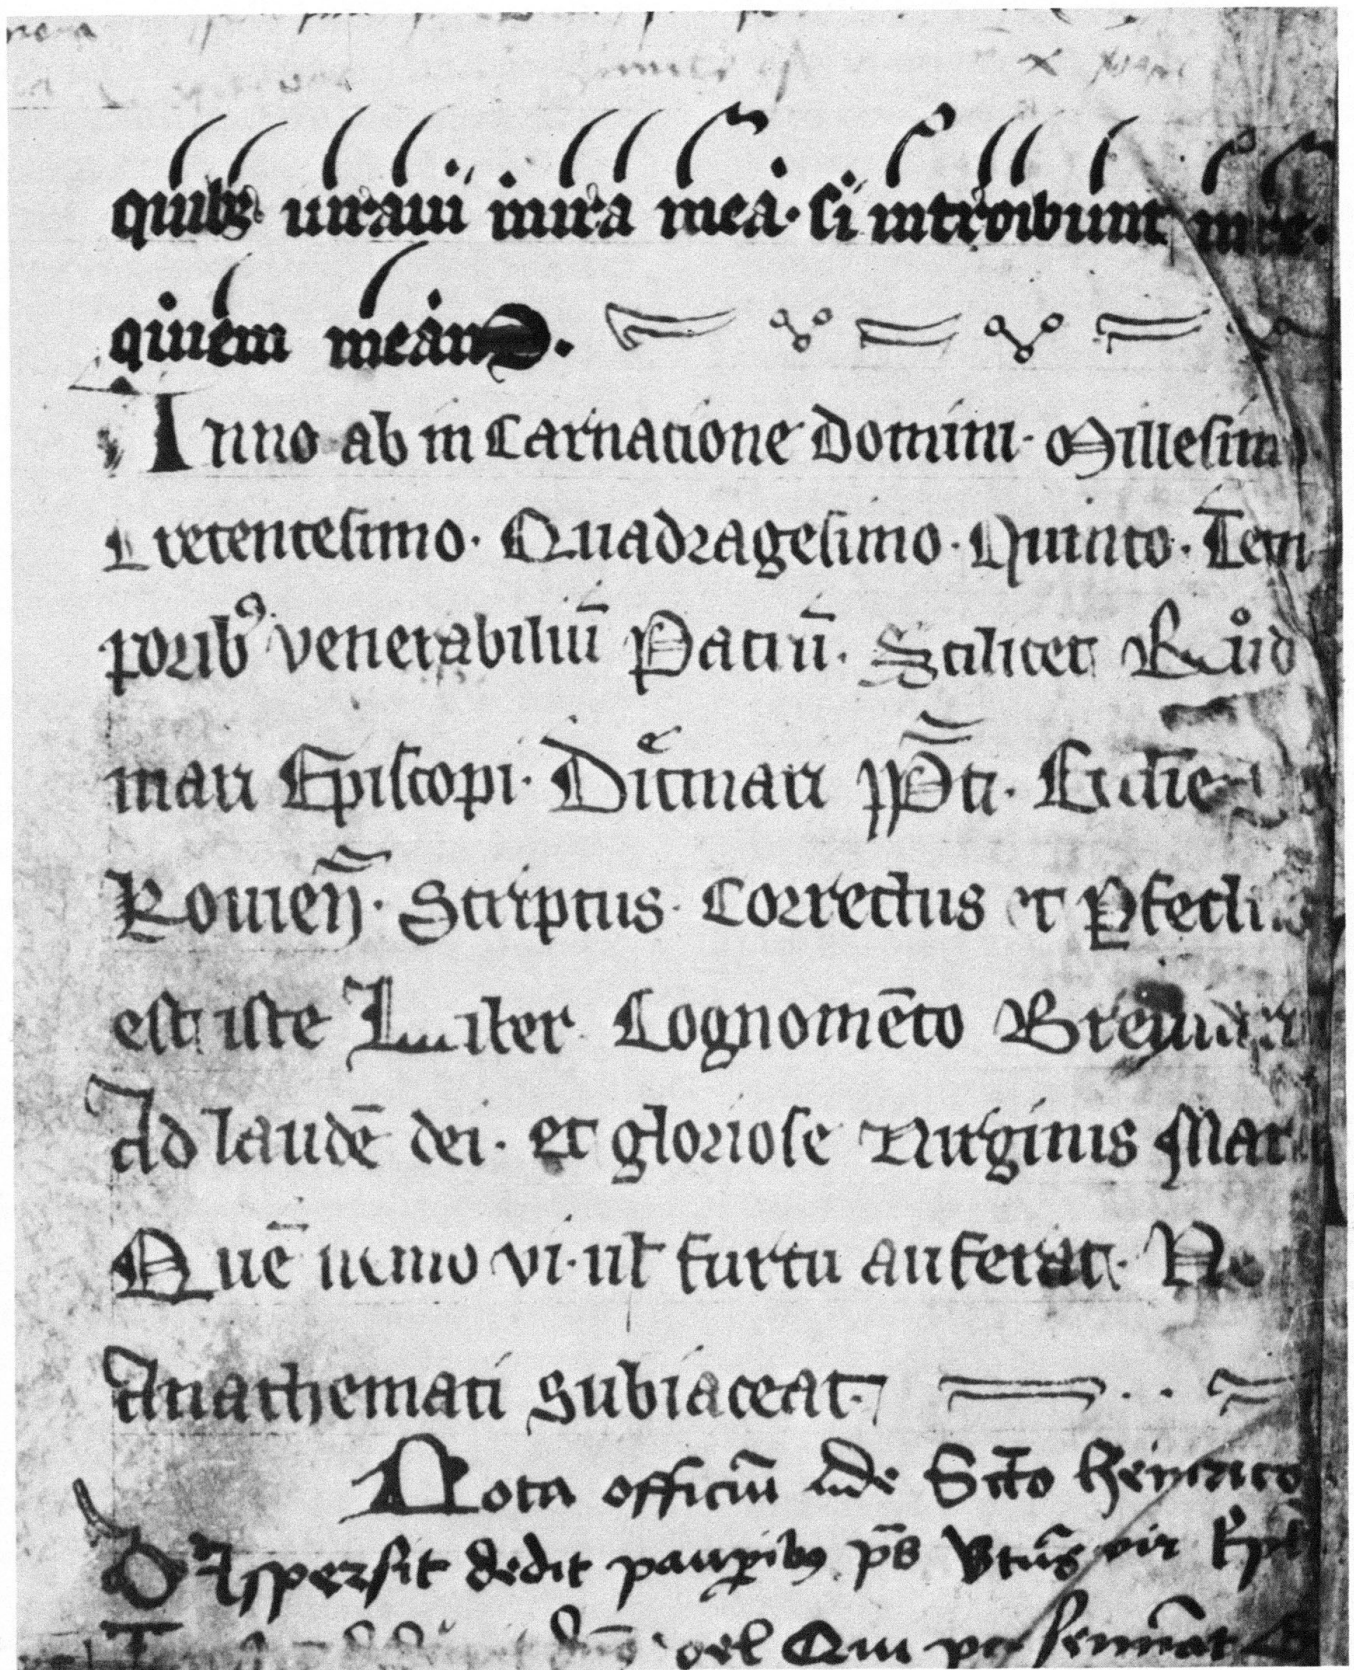 quibꝫ iuraui in ira mea · si introibunt in re·
quiem meam.
Anno ab in Carnatione Domini · Millesimo
Trecentesimo · Quadragesimo · Quinto · Tem
poribꝰ venerabiliū Patrū · Scilicet Růd
mari Episcopi · Dietmari pp̄ti · Ecclīe
Rouieñ · Scriptus · Correctus et ꝑfectus
est iste Liber Cognomēto Breuiari
Ad laudē dei · et gloriose Uirginis Mar
Quē nemo vi · ul furtu auferat · Ne
Anathemati subiaceat ·
Nota officiū de Scto heinrico
Dispersit dedit pauꝑibꝫ p̄s vir
vel Qui seminat